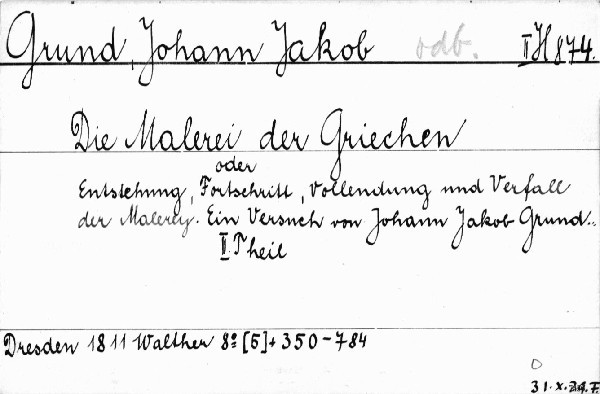 Grund, Johann Jakob odb. I H 874.
Die Malerei der Griechen
oder
Entstehung, Fortschritt, Vollendung und Verfall
der Malerey. Ein Versuch von Johann Jakob Grund.
II. Theil
Dresden 1811 Walther 8º [5]+350-784
31.X.